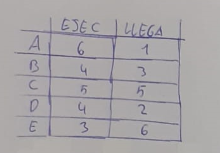 EJEC LLEGA
A 6 1
B 4 3
C 5 5
D 4 2
E 3 6